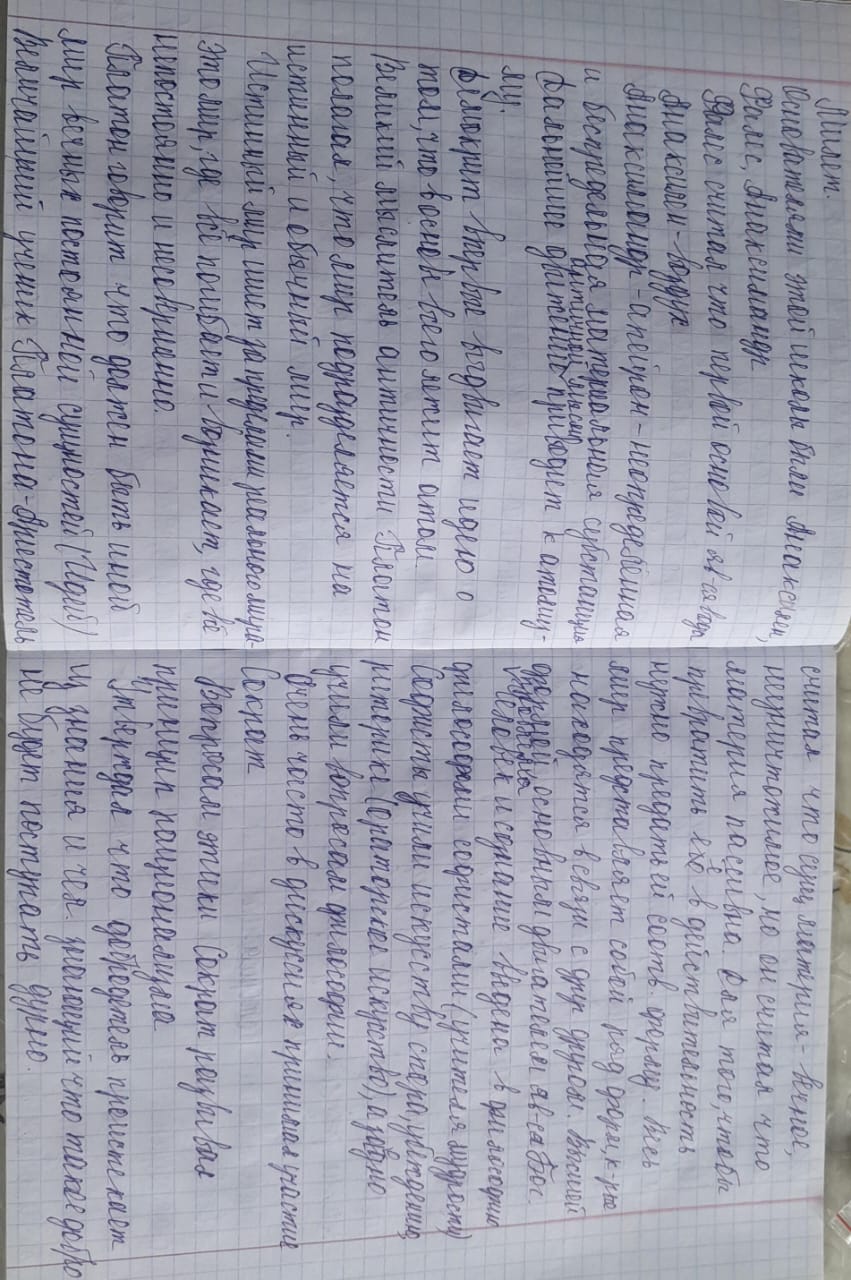 Милет.
Основателями этой школы были Анаксимен,
Фалес, Анаксимандр
Фалес считал что первой основой яв-ся вода
Анаксимен - воздух
Анаксимандр - апейрон - неопределённая
и беспредельная материальная субстанция
Дальнейшее античной мысли движение приводит к атомиз-
му.
Демокрит впервые выдвигает идею о
том, что в основе всего лежит атом
Великий мыслитель античности Платон
полагал, что мир подразделяется на
истинный и обычный мир.
Истинный мир лежит за пределами реального мира -
это мир, где всё погибает и возникает, где всё
непостоянно и несовершенно.
Платон говорит что должен быть иной
мир вечных постоянной сущностей (Идей)
Величайший ученик Платона - Аристотель
считал что сущ. материя - вечное,
неуничтожимое, но он считал что
материя пассивна. Для того, чтобы
превратить её в действительность
нужно предать ей соотв. форму. Весь
мир представляет собой ряд форм, к-рые
находятся в связи с друг другом. Высшей
формой, основным двигателем яв-ся Бог.
Человек и сознание введена в философию
философами софистами (учителя мудрости)
Софисты учили искусству спора, убеждению,
риторике (ораторское искусство), а заодно
учили вопросам философии.
Очень часто в дискуссиях принимал участие
Сократ
Вопросам этики Сократ развивал
принцип рационализма
Утверждал что добродетель проистекает
из знания и чел. знающий что такое добро
не будет поступать дурно.